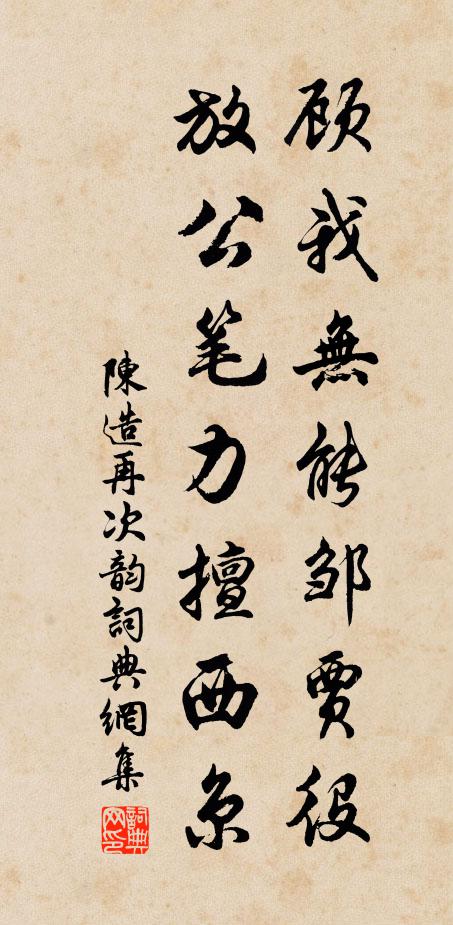 顾我無能邹贾役
放公笔力擅西京
陳造再次韵詞典網集
詞典网印